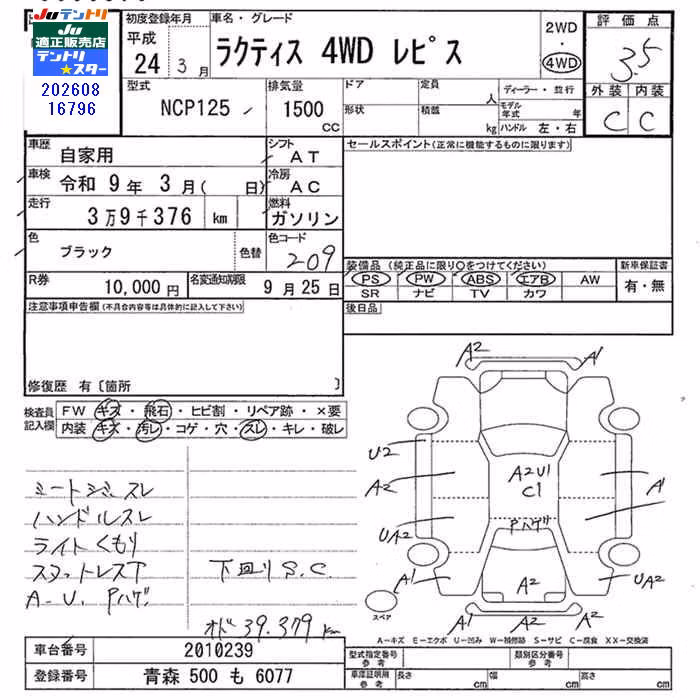 Juテントリ
Ju
適正販売店
テントリ
★スター
202608
16796
初度登録年月
平成
24 3月
車名・グレード
ラクティス 4WD レピス
2WD
・
4WD
評価点
3.5
外装 内装
C C
型式
NCP125
排気量
1500
CC
ドア
形状
定員
人
積載
kg
ディーラー・並行
モデル年式 年
ハンドル 左・右
車歴
自家用
シフト
AT
車検
令和 9年 3月( 日)
冷房
AC
走行
3万9千376 km
燃料
ガソリン
色
ブラック
色替
色コード
209
R券
10,000円
名変通知期限
9月25日
セールスポイント(正常に機能するものに限ります)
装備品 (純正品に限り○をつけてください)
PS PW ABS エアB AW
SR ナビ TV カワ
新車保証書
有・無
後日品
注意事項申告欄(不具合内容等は具体的に記入して下さい)
修復歴 有〔箇所 〕
検査員
記入欄
FW キズ・飛石・ヒビ割・リペア跡・×要
内装 キズ・汚レ・コゲ・穴・スレ・キレ・破レ
シートシミ スレ
ハンドルスレ
ライトくもり
スタットレスT
A-U. Pハゲ
下廻りS.C.
オド 39.379km
A2
A1
U2
A2
UA2
A1
A2U1
C1
Pハゲ
A1
UA2
A2
A1
A2
A2
スペア
A-キズ E-エクボ U-凹み W-補修跡 S-サビ C-腐食 XX-交換済
車台番号 2010239
登録番号 青森 500 も 6077
型式指定番号
参考
類別区分番号
参考
車庫証明用
参考
長さ cm
幅 cm
高さ cm